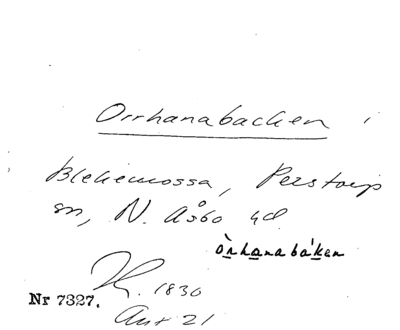 Orrhanabacken i
Blekemossa, Perstorp
sn, N. Åsbo hd
òrhanabáken
Nr 7327. 1830
21